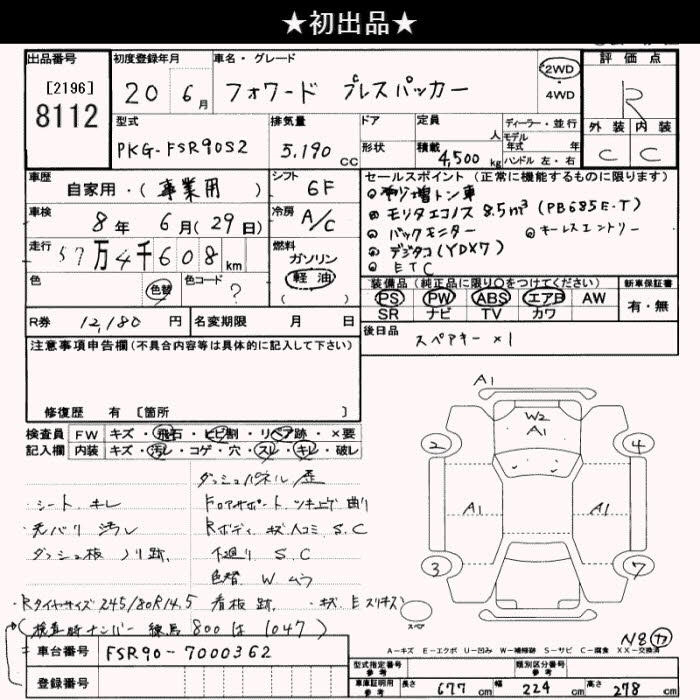 ★初出品★
出品番号 初度登録年月 車名・グレード 評価点
[2196]
8112
20 6月 フォワード プレスパッカー
2WD
・4WD
R
型式 排気量 ドア 定員 人 ディーラー・並行
モデル年式 年式
外装 内装
PKG-FSR90S2 5,190cc 形状 積載 4,500kg ハンドル 左・右
C C
車歴 自家用・(事業用) シフト 6F
セールスポイント(正常に機能するものに限ります)
◎増トン車
◎モリタエコノス 8.5m³(PB685E-T)
◎バックモニター ◎キーレスエントリー
◎デジタコ(YDX7)
◎ETC
車検 8年 6月(29日) 冷房 A/C
走行 57万4千608km 燃料 ガソリン
軽油
( )
色 色替 色コード ?
装備品(純正品に限り○をつけてください) 新車保証書
PS PW ABS エアB AW 有・無
SR ナビ TV カワ
R券 12,180円 名変期限 月 日
後日品 スペアキー×1
注意事項申告欄(不具合内容等は具体的に記入して下さい)
修復歴 有〔箇所 〕
検査員 FW キズ・飛石・ヒビ割・リペア跡・×要
記入欄 内装 キズ・汚レ・コゲ・穴・スレ・キレ・破レ
ダッシュパネル 歪
・シート キレ Fロアサポート ツキ上ゲ曲リ
・天バリ 汚レ Rボディ キズ凹コミ S.C
・ダッシュ板 ノリ跡 下廻リ S.C
色替 W ムラ
・Rタイヤサイズ245/80R14.5 看板跡 ・キズ、Eスリキズ
(検査時ナンバー 練馬800は1047)
A1
W2
A1
2 4
A1 A1
3 7
スペア
N8 カ
A-キズ E-エクボ U-凹み W-補修跡 S-サビ C-腐食 XX-交換済
車台番号 FSR90-7000362
登録番号
型式指定番号 参考 類別区分番号 参考
車庫証明用 参考 長さ 677cm 幅 224cm 高さ 278cm